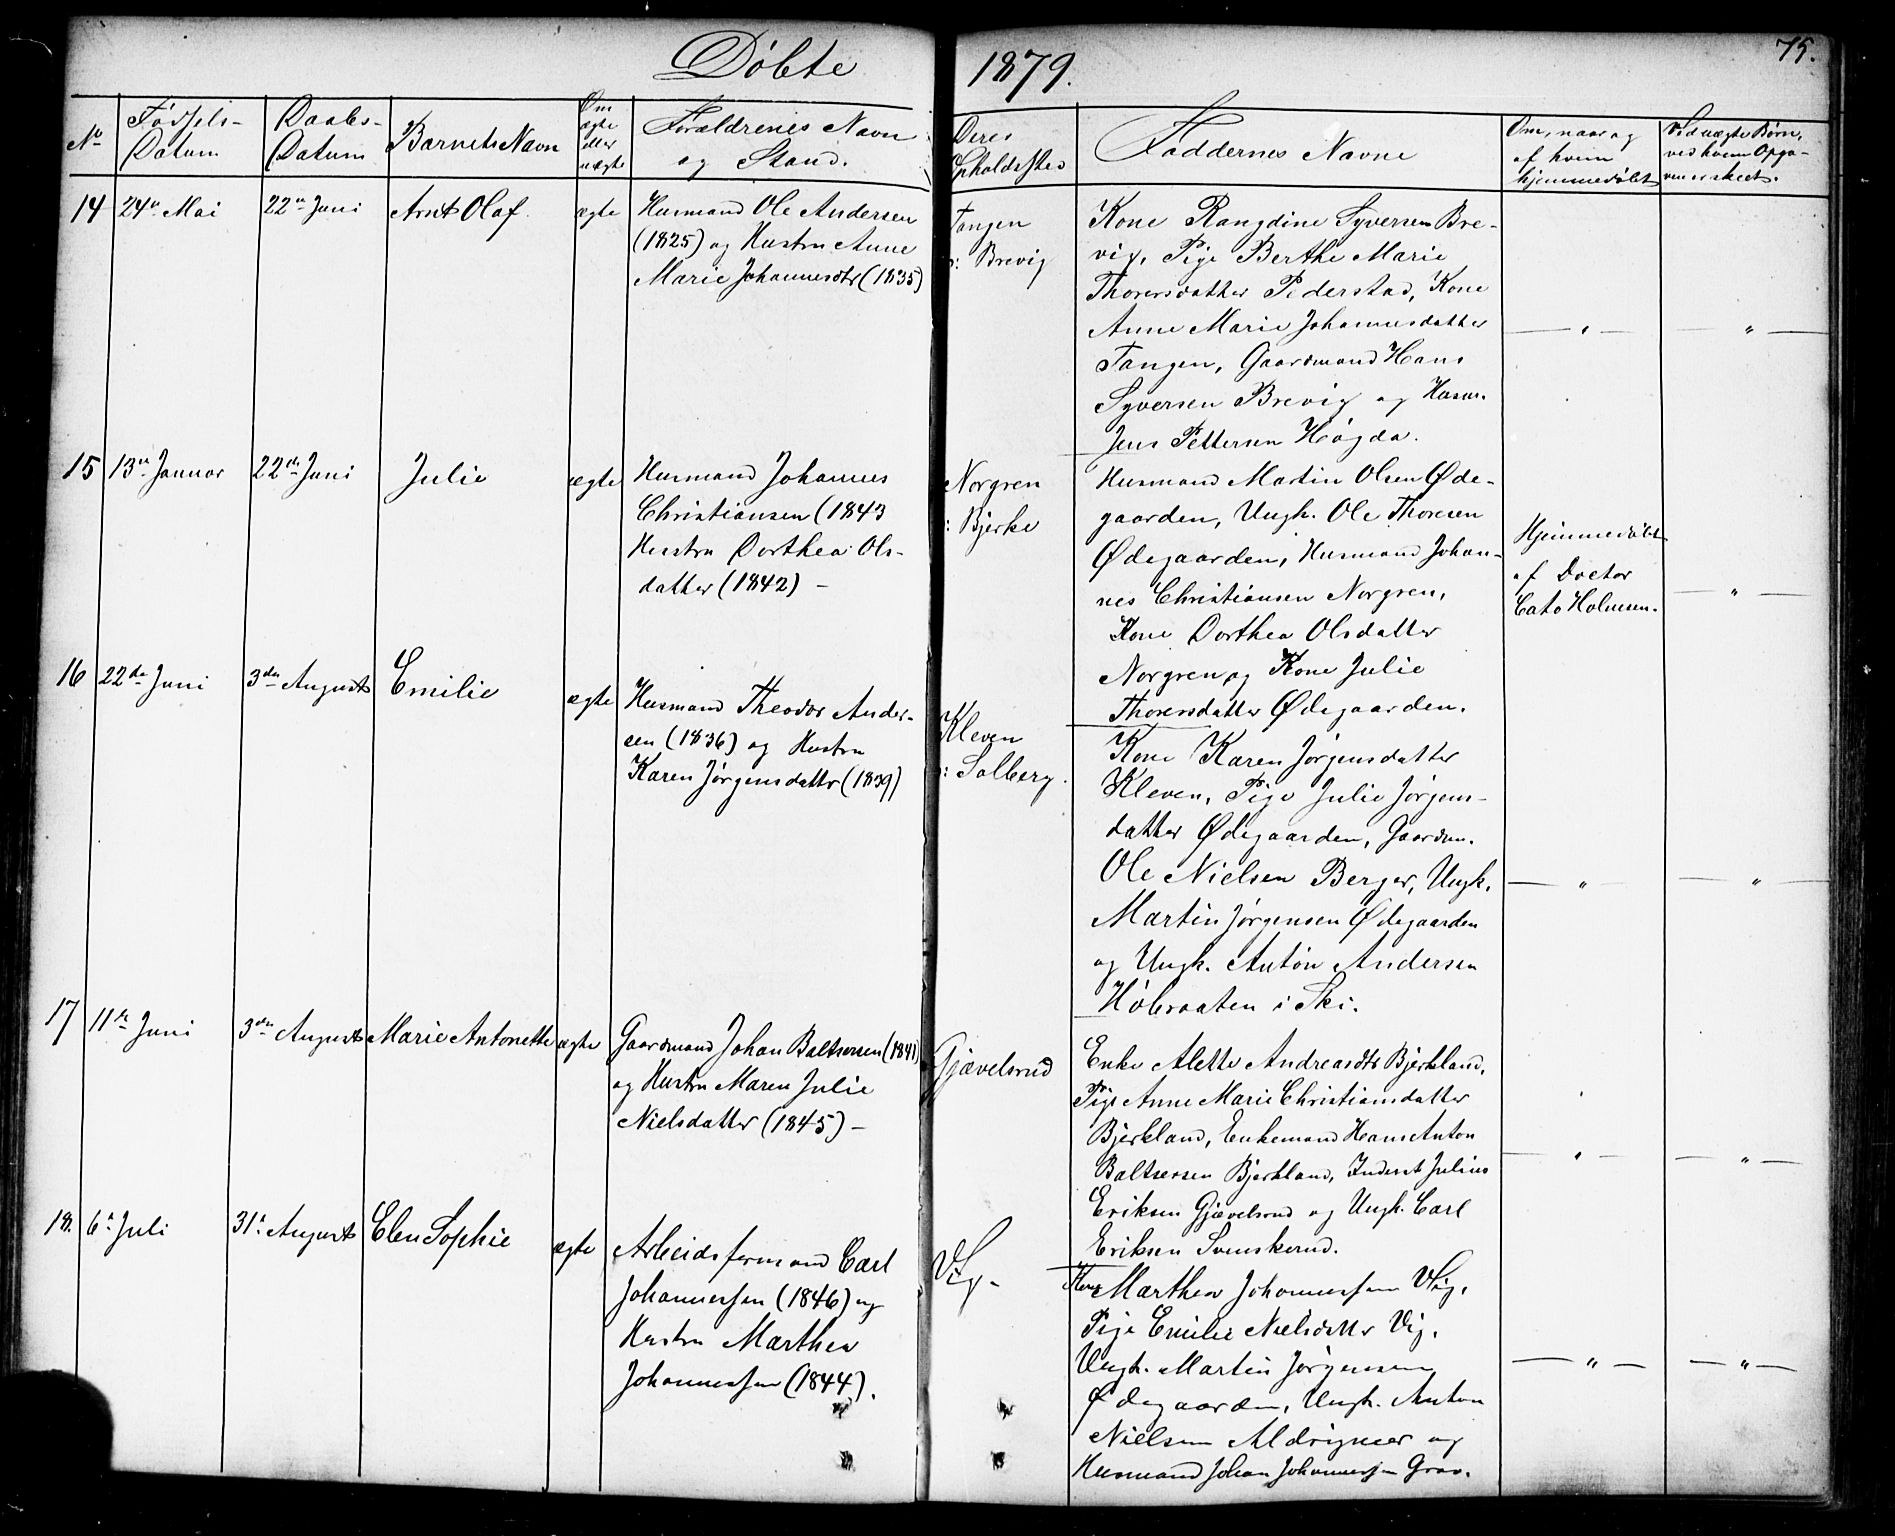 Døbte 1879. 75.
No
Fødsels-
Datum
Daabs-
Datum
Barnets Navn
Om
ægte
eller
uægte
Forældrenes Navn
og Stand.
Deres
Opholdssted
Faddernes Navne
Om, naar og
af hvem
hjemmedøbt
Ved uægte Børn,
ved hvem Opga-
ven er skeet.
14 24de Mai 22de Juni Arnt Olaf. ægte
Husmand Ole Andersen
(1825) og Hustru Anne
Marie Johannesdtr (1835)
Tangen
p: Brevig
Kone Rangdine Syversen Bre-
vig, Pige Berthe Marie
Thorersdatter Pederstad, Kone
Anne Marie Johannesdatter
Tangen, Gaardmand Hans
Syversen Brevig og Husm.
Jens Pettersen Høgda.
— " — — " —
15 13de Januar 22de Juni Julie ægte
Husmand Johannes
Christiansen (1843
Hustru Dorthea Ols-
datter (1842) —
Norgren
p: Bjerke
Husmand Martin Olsen Øde-
gaarden, Ungk. Ole Thoresen
Ødegaarden, Husmand Johan-
nes Christiansen Norgren,
Kone Dorthea Olsdatter
Norgren og Kone Julie
Thorersdatter Ødegaarden.
Hjemmedøbt
af Doctor
Cato Holmsen.
— " —
16 22de Juni 3die August Emilie ægte
Husmand Theodor Ander-
sen (1836) og Hustru
Karen Jørgensdattr (1839)
Kleven
p: Solberg.
Kone Karen Jørgensdatter
Kleven, Pige Julie Jørgens-
datter Ødegaarden, Gaardm.
Ole Nielsen Berger, Ungk.
Martin Jørgensen Ødegaarden
og Ungk. Anton Andersen
Høbraaten i Ski.
— " — — " —
17 11te Juni 3die August Marie Antonette ægte
Gaardmand Johan Baltsersen (1841)
og Hustru Maren Julie
Nielsdatter (1845) —
Gjævelsrud
Enke Alette Andreasdtr Bjerkland,
Pige Anne Marie Christiansdatter
Bjerkland, Enkemand Hans Anton
Baltsersen Bjerkland, Inderst Julius
Eriksen Gjævelsrud og Ungk. Carl
Eriksen Svenskerud.
— " — — " —
18. 6te Juli 31te August Elen Sophie ægte
Arbeidsformand Carl
Johannessen (1846) og
Hustru Marthea
Johannessen (1844).
Vig —
Kone Marthea Johannessen Vig,
Pige Emilie Nielsdattr Vig,
Ungk. Martin Jørgensen
Ødegaarden, Ungk. Anton
Nielsen Aldrigmer og
Husmand Johan Johannessen Grav.
— " — — " —